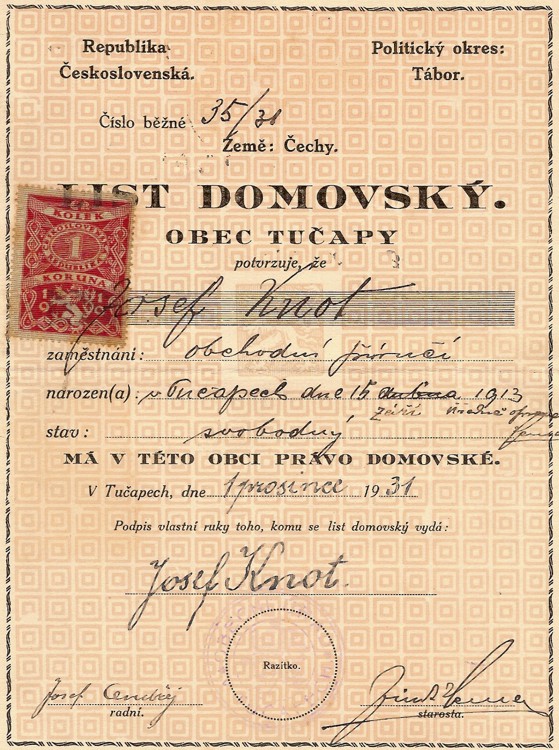 Republika
Československá.
Politický okres:
Tábor.
Číslo běžné 35/31
Země: Čechy.
LIST DOMOVSKÝ.
KOLEK
1
KORUNA
OBEC TUČAPY
potvrzuje, že
Josef Knot
zaměstnání: obchodní příručí
narozen(a): v Tučapech dne 15 dubna 1913
září
stav: svobodný
MÁ V TÉTO OBCI PRÁVO DOMOVSKÉ.
V Tučapech, dne 1 prosince 1931
Podpis vlastní ruky toho, komu se list domovský vydá:
Josef Knot.
Razítko.
Josef
radní.
starosta.